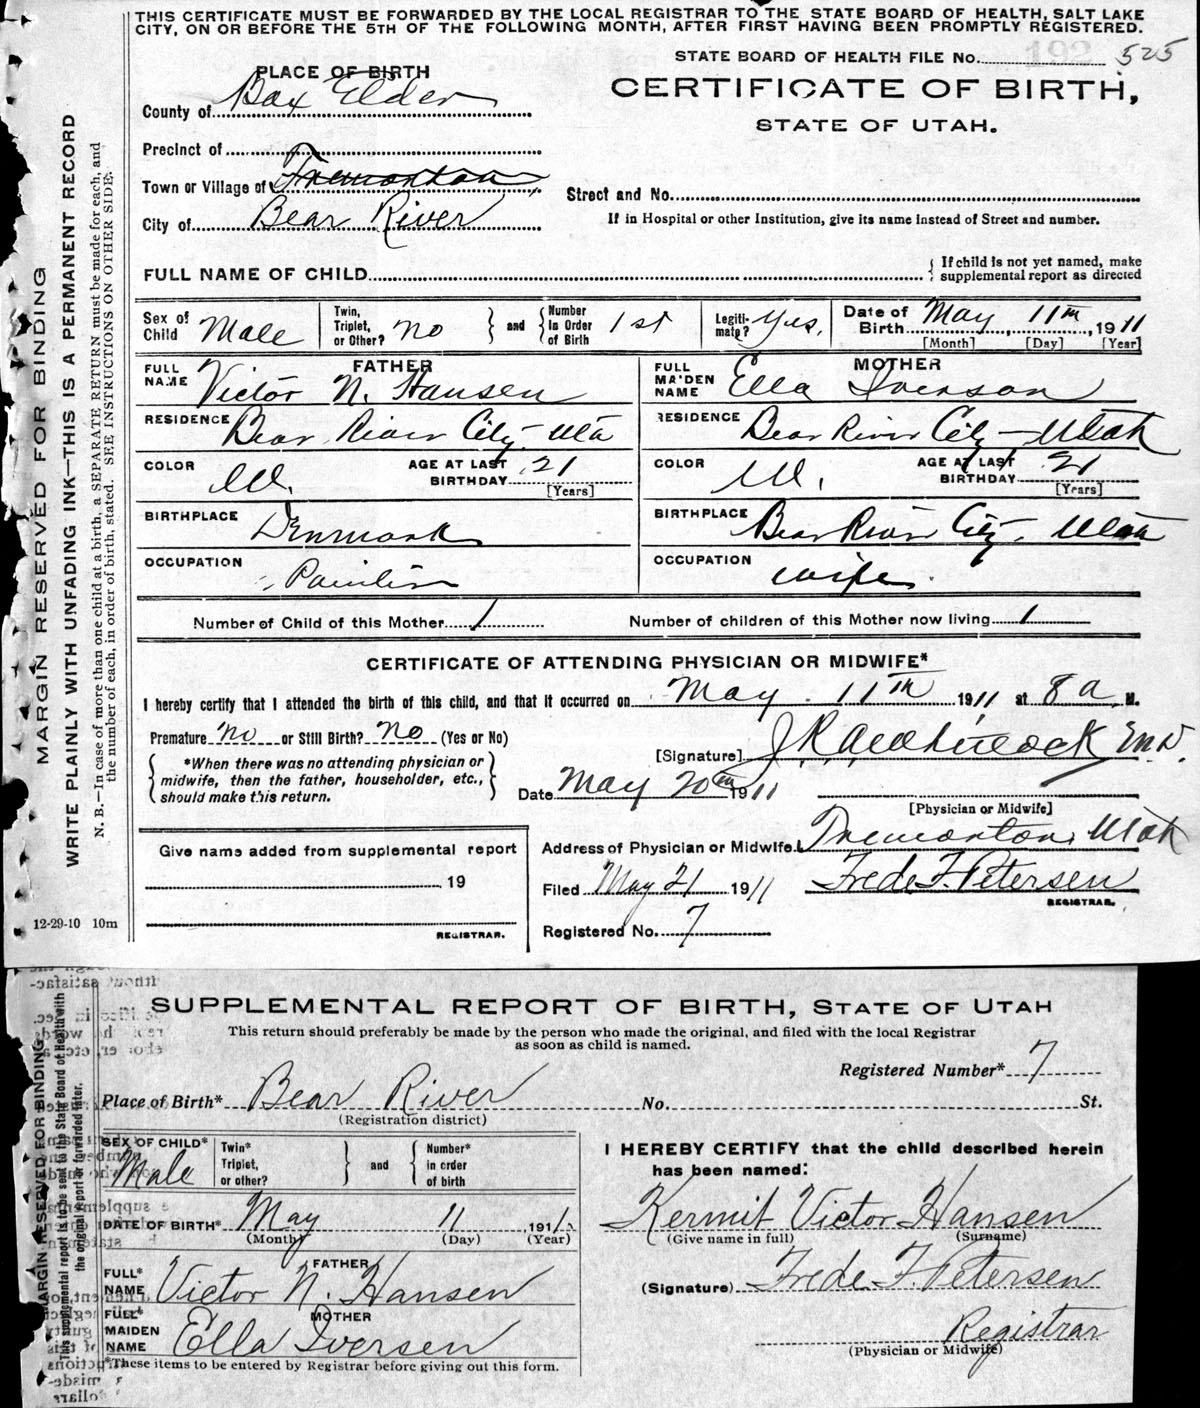 THIS CERTIFICATE MUST BE FORWARDED BY THE LOCAL REGISTRAR TO THE STATE BOARD OF HEALTH, SALT LAKE
CITY, ON OR BEFORE THE 5TH OF THE FOLLOWING MONTH, AFTER FIRST HAVING BEEN PROMPTLY REGISTERED.
STATE BOARD OF HEALTH FILE No. 192 525
CERTIFICATE OF BIRTH,
STATE OF UTAH.
PLACE OF BIRTH
County of Box Elder
Precinct of
Town or Village of Tremonton
City of Bear River
Street and No.
If in Hospital or other Institution, give its name instead of Street and number.
FULL NAME OF CHILD
{ If child is not yet named, make
supplemental report as directed
Sex of Child Male
Twin, Triplet, or Other? No } and { Number In Order of Birth 1st
Legitimate? Yes.
Date of Birth May 11th, 1911
[Month] [Day] [Year]
FATHER
FULL NAME Victor N. Hansen
RESIDENCE Bear River City Uta
COLOR W. AGE AT LAST BIRTHDAY 21 [Years]
BIRTHPLACE Denmark
OCCUPATION
MOTHER
FULL MAIDEN NAME Ella Iverson
RESIDENCE Bear River City - Utah
COLOR W. AGE AT LAST BIRTHDAY 21 [Years]
BIRTHPLACE Bear River City, Utah
OCCUPATION wife.
Number of Child of this Mother 1 Number of children of this Mother now living 1
CERTIFICATE OF ATTENDING PHYSICIAN OR MIDWIFE*
I hereby certify that I attended the birth of this child, and that it occurred on May 11th 1911, at 8 a M.
Premature No or Still Birth? No (Yes or No)
{ *When there was no attending physician or
midwife, then the father, householder, etc.,
should make this return. }
[Signature] M.D.
Date May 20th 1911
[Physician or Midwife]
Address of Physician or Midwife Tremonton, Utah
Filed May 21 1911 Frede F. Petersen
REGISTRAR.
Registered No. 7
Give name added from supplemental report
19
REGISTRAR.
12-29-10 10m
MARGIN RESERVED FOR BINDING
WRITE PLAINLY WITH UNFADING INK—THIS IS A PERMANENT RECORD
N. B.—In case of more than one child at a birth, a SEPARATE RETURN must be made for each, and
the number of each, in order of birth, stated. SEE INSTRUCTIONS ON OTHER SIDE.
SUPPLEMENTAL REPORT OF BIRTH, STATE OF UTAH
This return should preferably be made by the person who made the original, and filed with the local Registrar
as soon as child is named.
Registered Number* 7
Place of Birth* Bear River No. St.
(Registration district)
SEX OF CHILD* Male
Twin* Triplet, or other? } and { Number* in order of birth
DATE OF BIRTH* May 11 1911
(Month) (Day) (Year)
FATHER
FULL* NAME Victor N. Hansen
MOTHER
FULL* MAIDEN NAME Ella Iversen
*These items to be entered by Registrar before giving out this form.
I HEREBY CERTIFY that the child described herein
has been named:
Kermit Victor Hansen
(Give name in full) (Surname)
(Signature) Frede F. Petersen
Registrar
(Physician or Midwife)
MARGIN RESERVED FOR BINDING
This supplemental report is to be sent to the State Board of Health with
the original report or forwarded later.